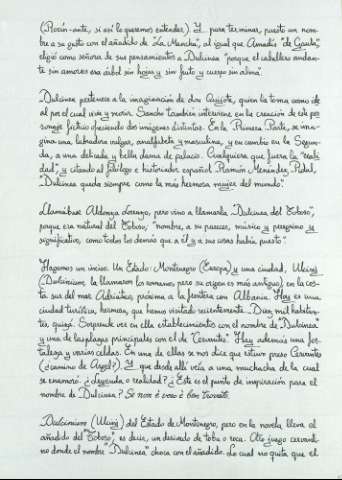 (Rocín-ante, si así lo queremos entender). Y para terminar, puesto un nom-
bre a su gusto con el añadido de "La Mancha", al igual que Amadís "de Gaula",
eligió como señora de sus pensamientos a Dulcinea "porque el caballero andan-
te sin amores era árbol sin hojas y sin fruto y cuerpo sin alma".
Dulcinea pertenece a la imaginación de don Quijote, quien la toma como ide
al por el cual vive y morir. Sancho también interviene en la creación de este per
sonaje ficticio ofreciendo dos imágenes distintas. En la Primera Parte, se ima-
gina una labradora vulgar, analfabeta y masculina, y su cambio en la Segun-
da, a una delicada y bella dama de palacio. Cualquiera que fuera la "reali
dad", y citando al filólogo e historiador español Ramón Menéndez Pidal,
"Dulcinea queda siempre como la más hermosa mujer del mundo".
Llamábase Aldonza Lorenzo, pero vino a llamarla "Dulcinea del Toboso",
porque era natural del Toboso, "nombre, a su parecer, músico y peregrino y
significativo, como todos los demás que a él y a sus cosas había puesto".
Hagamos un inciso. Un Estado: Montenegro (Europa) y una ciudad, Ulcinj
(Dulcinium, la llamaron los romanos, pero su origen es más antiguo) en la cos-
ta sur del mar Adriático, próxima a la frontera con Albania. Hoy es una
ciudad turística, hermosa, que hemos visitado recientemente. Diez mil habitan-
tes, quizá. Sorprende ver en ella establecimientos con el nombre de "Dulcinea"
y una de las playas principales con el de "Cervantes". Hay además una for-
taleza y varias celdas. En una de ellas se nos dice que estuvo preso Cervantes
(¿camino de Argel?) Y que desde allí veía a una muchacha de la cual
se enamoró. ¿Leyenda o realidad? ¿Este es el punto de inspiración para el
nombre de Dulcinea? Se non è vero è ben trovato.
Dulcinium (Ulcinj) del Estado de Montenegro, pero en la novela lleva el
añadido del "Toboso", es decir, un derivado de toba o roca. Otro juego cervanti-
no donde el nombre "Dulcinea" choca con el añadido. Lo cual no quita que el